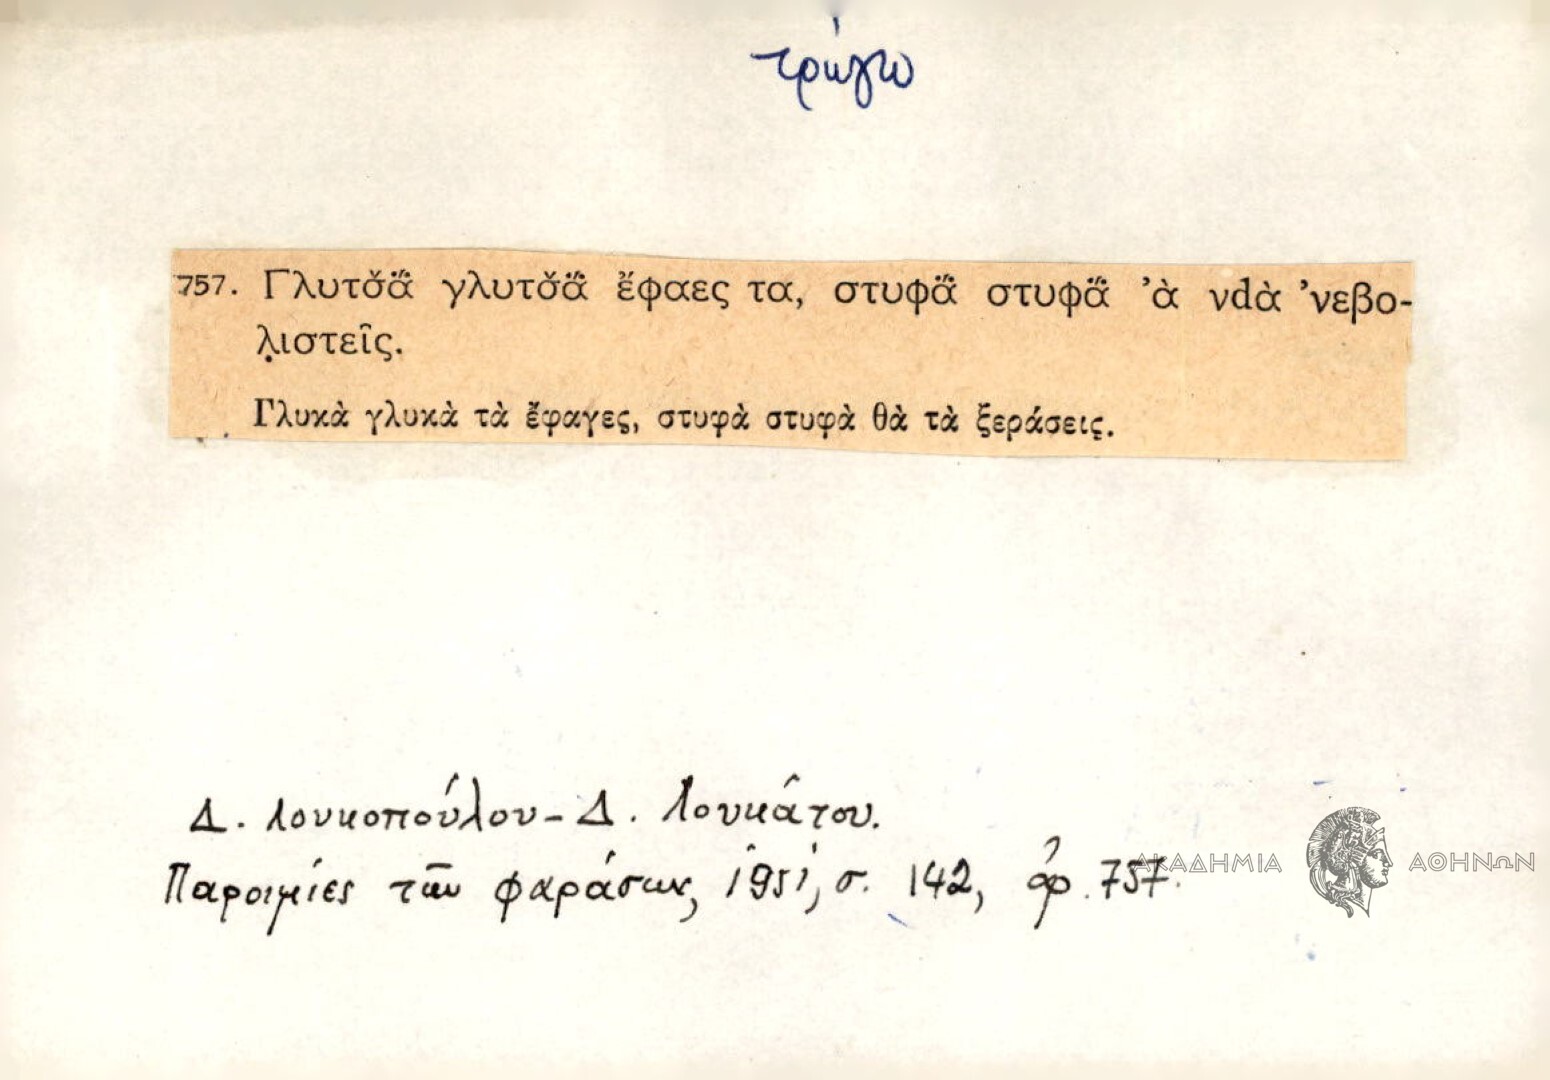 τρώγω
757. Γλυτσ̌ᾄ γλυτσ̌ᾄ ἔφαες τα, στυφᾄ στυφᾄ ’ὰ νdὰ ’νεβο-
λ̣ιστεῖς.
Γλυκὰ γλυκὰ τὰ ἔφαγες, στυφὰ στυφὰ θὰ τὰ ξεράσεις.
Δ. Λουκοπούλου - Δ. Λουκάτου.
Παροιμίες τῶν Φαράσων, 1951, σ. 142, ἀρ. 757.
ΑΚΑΔΗΜΙΑ ΑΘΗΝΩΝ